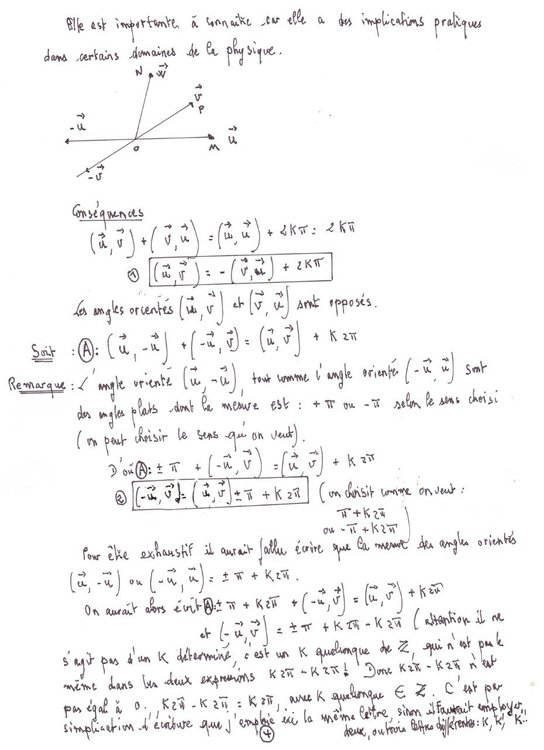 Elle est importante à connaître car elle a des implications pratiques
dans certains domaines de la physique.
N W⃗
-u⃗ v⃗
P
O M u⃗
-v⃗
Conséquences
(u⃗, v⃗) + (v⃗, u⃗) = (u⃗, u⃗) + 2Kπ = 2Kπ
① (u⃗, v⃗) = -(v⃗, u⃗) + 2Kπ
Les angles orientés (u⃗, v⃗) et (v⃗, u⃗) sont opposés.
Soit : Ⓐ: (u⃗, -u⃗) + (-u⃗, v⃗) = (u⃗, v⃗) + K2π
Remarque : L'angle orienté (u⃗, -u⃗), tout comme l'angle orienté (-u⃗, u⃗) sont
des angles plats dont la mesure est : +π ou -π selon le sens choisi
(on peut choisir le sens qu'on veut).
D'où Ⓐ: ±π + (-u⃗, v⃗) = (u⃗, v⃗) + K2π
② (-u⃗, v⃗) = (u⃗, v⃗) ± π + K2π (on choisit comme on veut :
π + K2π
ou -π + K2π)
Pour être exhaustif il aurait fallu écrire que la mesure des angles orientés
(u⃗, -u⃗) ou (-u⃗, u⃗) = ±π + K2π.
On aurait alors écrit Ⓐ: ±π + K2π + (-u⃗, v⃗) = (u⃗, v⃗) + K2π
et (-u⃗, v⃗) = ±π + K2π - K2π (attention il ne
s'agit pas d'un K déterminé, c'est un K quelconque de Z, qui n'est pas le
même dans les deux expressions K2π - K2π! Donc K2π - K2π n'est
pas égal à 0. K2π - K2π = K2π, avec K quelconque ∈ Z. C'est par
simplication d'écriture que j'emploie ici la même lettre, sinon il faudrait employer
deux, ou trois lettres différentes : K, K', K''.
4